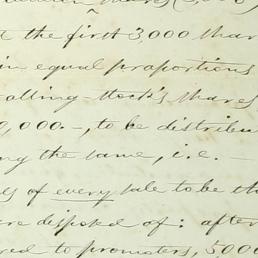 t the first 3,000 shar
in equal proportions
alling Stock's shares
0,000.—, to be distribu
ng the same, i.e. —
es of every sale to be th
re disposed of: after
red to promoters, 5000